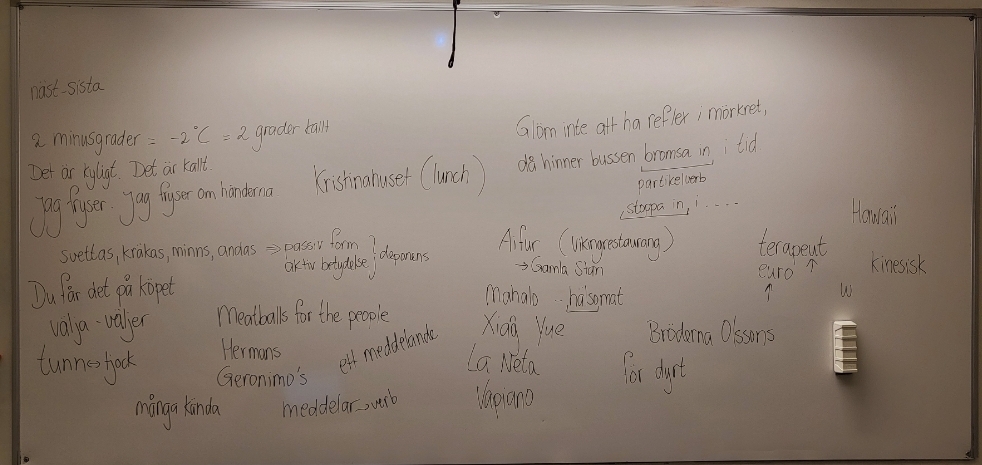 näst-sista
2 minusgrader = -2°C = 2 grader kallt
Det är kyligt. Det är kallt.
Jag fryser. Jag fryser om händerna
Kristinahuset (lunch)
svettas, kräkas, minns, andas ⇒ passiv form
aktiv betydelse } deponens
Du får det på köpet
välja - väljer
tunn ↔ tjock
Meatballs for the people
Hermans
Geronimo's
ett meddelande
många kända
meddelar → verb
Glöm inte att ha reflex i mörkret,
då hinner bussen bromsa in i tid
partikelverb
stoppa in, i ....
Aifur (Vikingrestaurang)
→ Gamla Stan
Mahalo
Xiao Yue
La Neta
Vapiano
Bröderna Olssons
för dyrt
terapeut ↑
euro
↑
Hawaii
kinesisk
w